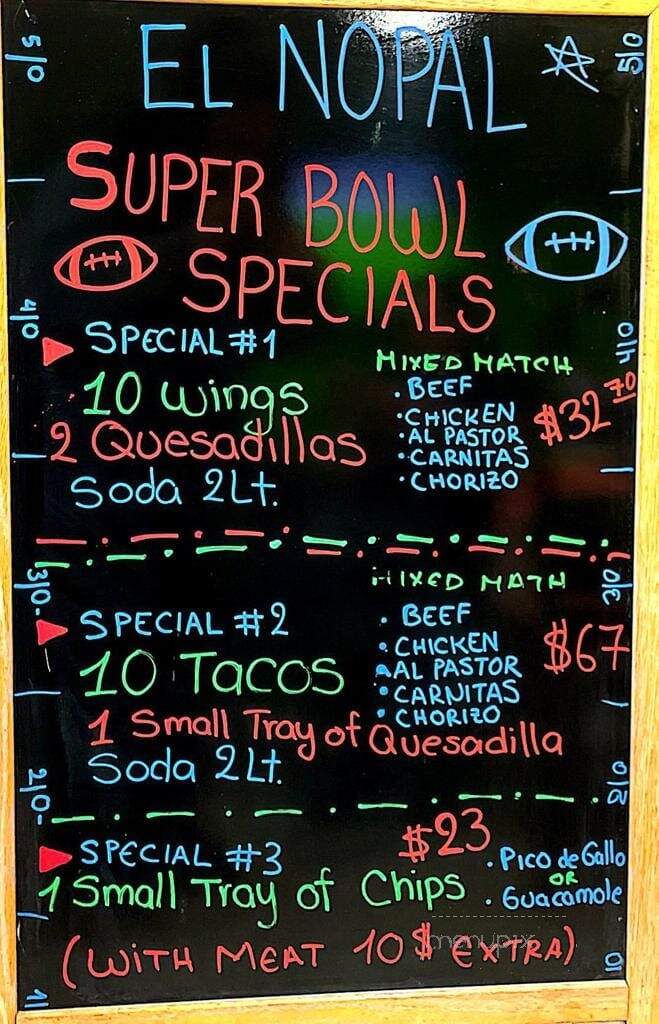 EL NOPAL
SUPER BOWL
SPECIALS
SPECIAL #1
10 wings
2 Quesadillas
Soda 2Lt.
MIXED MATCH
• BEEF
• CHICKEN
• AL PASTOR
• CARNITAS
• CHORIZO
$32.70
SPECIAL #2
10 Tacos
1 Small Tray of Quesadilla
Soda 2Lt.
MIXED MATH
• BEEF
• CHICKEN
• AL PASTOR
• CARNITAS
• CHORIZO
$67
SPECIAL #3
$23
1 Small Tray of Chips
• Pico de Gallo
OR
• Guacamole
(WITH MEAT 10$ EXTRA)
menupix
5|0
4|0
3|0-
2|0-
1|
5|0
4|0
3|0
2|0